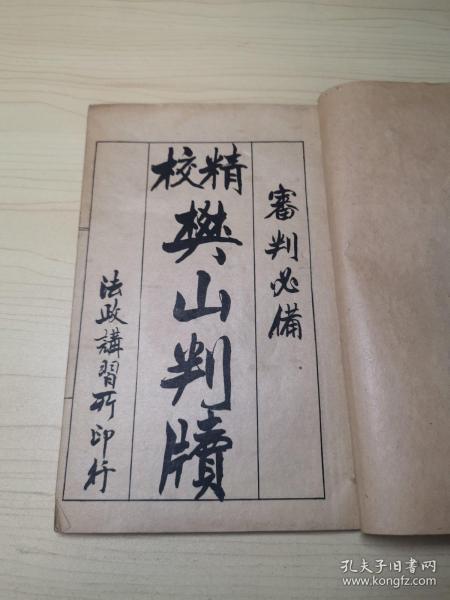 審判必備
精校
樊山判牘
法政講習所印行
孔夫子旧书网
www.kongfz.com